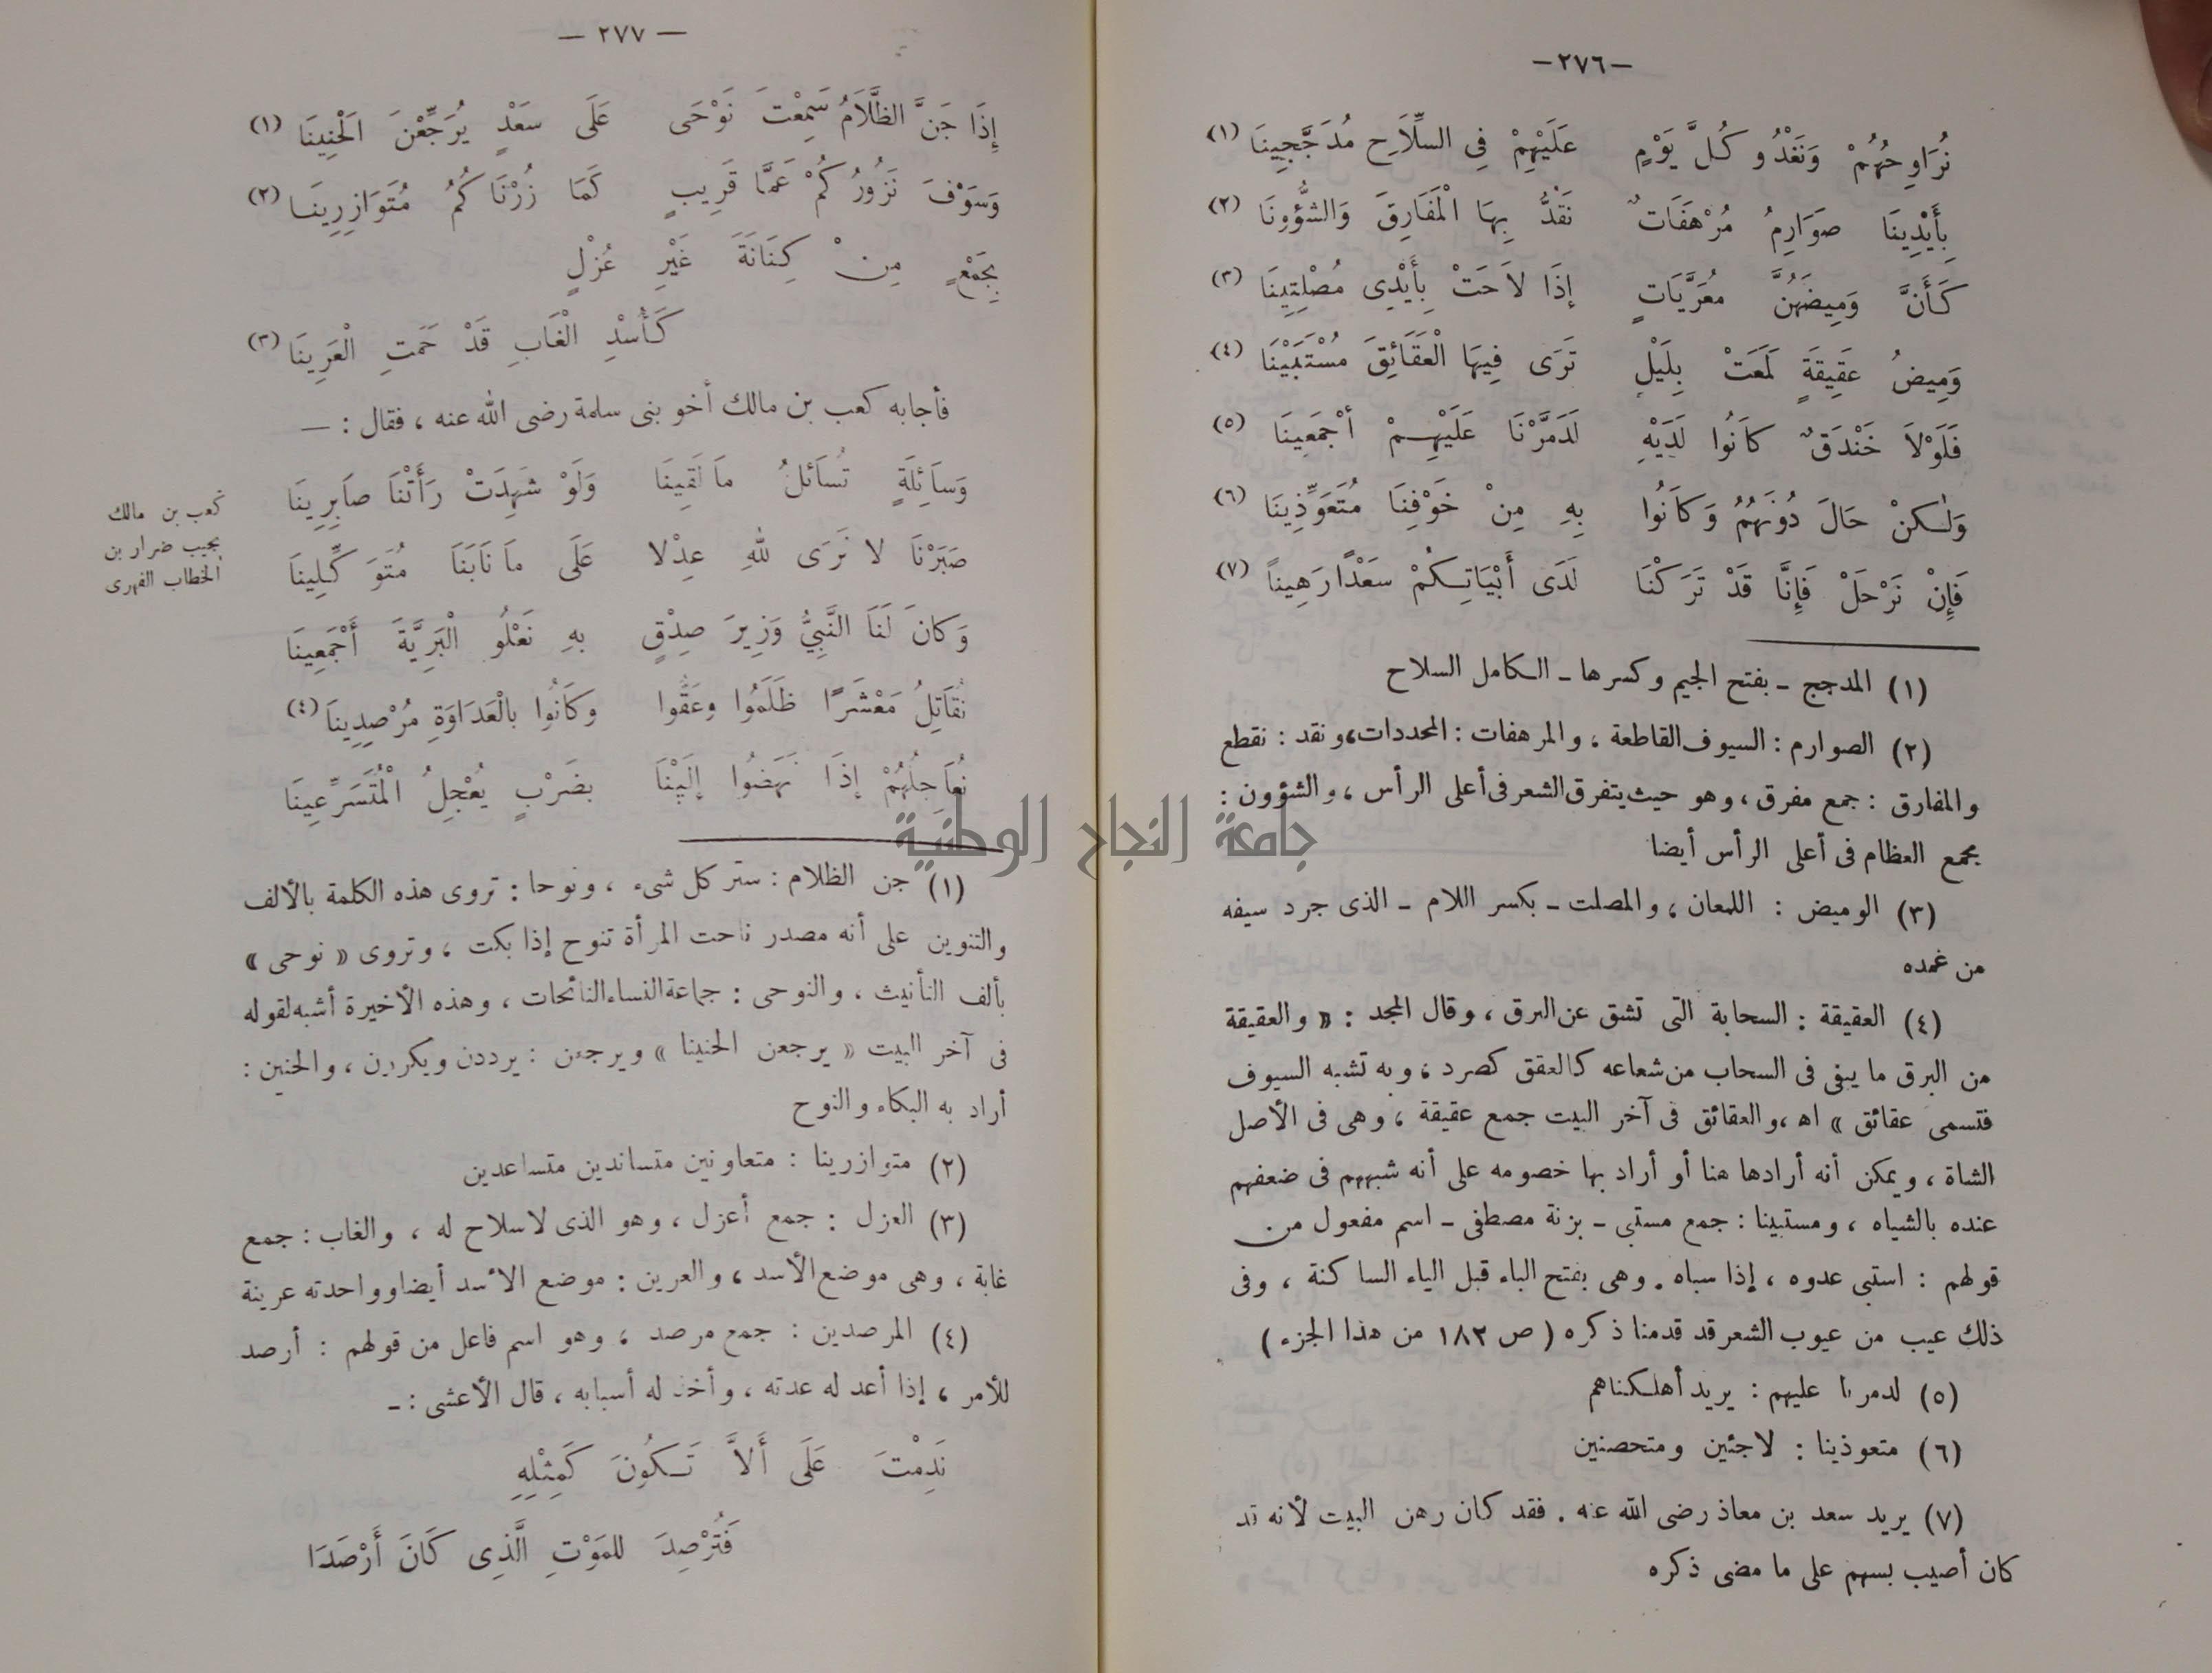 —٢٧٦—
نُرَاوِحُهُمْ وَنَغْدُو كُلَّ يَوْمٍ عَلَيْهِمْ فِي السِّلاَحِ مُدَجَّجِينَا (١)
بِأَيْدِينَا صَوَارِمُ مُرْهَفَاتٌ نَقُدُّ بِهَا الْمَفَارِقَ وَالشُّؤُونَا (٢)
كَأَنَّ وَمِيضَهُنَّ مُعَرَّيَاتٍ إذَا لاَحَتْ بِأَيْدِى مُصْلِتِينَا (٣)
وَمِيضُ عَقِيقَةٍ لَمَعَتْ بِلَيْلٍ تَرَى فِيهَا الْعَقَائِقَ مُسْتَبَيْنَا (٤)
فَلَوْلاَ خَنْدَقٌ كَانُوا لَدَيْهِ لَدَمَّرْنَا عَلَيْهِمْ أجْمَعِينَا (٥)
وَلٰكِنْ حَالَ دُونَهُمُ وَكَانُوا بِهِ مِنْ خَوْفِنَا مُتَعَوِّذِينَا (٦)
فَإِنْ نَرْحَلْ فَإِنَّا قَدْ تَرَكْنَا لَدَى أَبْيَاتِكُمْ سَعْدًا رَهِيناً (٧)
(١) المدجج – بفتح الجيم وكسرها – الكامل السلاح
(٢) الصوارم : السيوف القاطعة ، والمرهفات : المحددات، ونقد : نقطع
والمفارق : جمع مفرق ، وهو حيث يتفرق الشعر فى أعلى الرأس ، والشؤون :
مجمع العظام فى أعلى الرأس أيضا
(٣) الوميض : اللمعان ، والمصلت – بكسر اللام – الذى جرد سيفه
من غمده
(٤) العقيقة : السحابة التى تشق عن البرق ، وقال المجد : « والعقيقة
من البرق ما يبقى فى السحاب من شعاعه كالعقق كصرد ، وبه تشبه السيوف
فتسمى عقائق » اه ، والعقائق فى آخر البيت جمع عقيقة ، وهى فى الأصل
الشاة ، ويمكن أنه أرادها هنا أو أراد بها خصومه على أنه شبههم فى ضعفهم
عنده بالشياه ، ومستبينا : جمع مستبى – بزنة مصطفى – اسم مفعول من
قولهم : استبى عدوه ، إذا سباه . وهى بفتح الباء قبل الياء الساكنة ، وفى
ذلك عيب من عيوب الشعر قد قدمنا ذكره ( ص ١٨٢ من هذا الجزء )
(٥) لدمرنا عليهم : يريد أهلكناهم
(٦) متعوذينا : لاجئين ومتحصنين
(٧) يريد سعد بن معاذ رضى الله عنه . فقد كان رهن البيت لأنه قد
كان أصيب بسهم على ما مضى ذكره
— ٢٧٧ —
إِذَا جَنَّ الظَّلَامُ سَمِعْتَ نَوْحَى عَلَى سَعْدٍ يُرَجِّعْنَ الْحَنِينَا (١)
وَسَوْفَ نَزُورُكُمْ عَمَّا قَرِيبٍ كَمَا زُرْنَاكُمُ مُتَوَازِرِينَا (٢)
بِجَمْعٍ مِنْ كِنَانَةَ غَيْرِ عُزْلٍ
كَأُسْدِ الْغَابِ قَدْ حَمَتِ الْعَرِينَا (٣)
فأجابه كعب بن مالك أخو بنى سلمة رضى الله عنه ، فقال : —
وَسَائِلَةٍ تُسَائِلُ مَا لَقِينَا وَلَوْ شَهِدَتْ رَأَتْنَا صَابِرِينَا
صَبَرْنَا لا نَرَى للهِ عِدْلا عَلَى مَا نَابَنَا مُتَوَكِّلِينَا
وَكَانَ لَنَا النَّبِيُّ وَزِيرَ صِدْقٍ بِهِ نَعْلُو الْبَرِيَّةَ أَجْمَعِينَا
نُقَاتِلُ مَعْشَرًا ظَلَمُوا وعَقُّوا وكَانُوا بالْعَدَاوَةِ مُرْصِدِينَا (٤)
نُعَاجِلُهُمْ إِذَا نَهَضُوا إِلَيْنَا بِضَرْبٍ يُعْجِلُ الْمُتَسَرِّعِينَا
كعب بن مالك
يجيب ضرار بن
الخطاب الفهرى
(١) جن الظلام : ستر كل شىء ، ونوحا : تروى هذه الكلمة بالألف
والتنوين على أنه مصدر ناحت المرأة تنوح إذا بكت ، وتروى « نوحى »
بألف التأنيث ، والنوحى : جماعة النساء النائحات ، وهذه الأخيرة أشبه لقوله
فى آخر البيت « يرجعن الحنينا » ويرجعن : يرددن ويكررن ، والحنين :
أراد به البكاء والنوح
(٢) متوازرينا : متعاونين متساندين متساعدين
(٣) العزل : جمع أعزل ، وهو الذى لاسلاح له ، والغاب : جمع
غابة ، وهى موضع الأسد ، والعرين : موضع الأسد أيضا وواحدته عرينة
(٤) المرصدين : جمع مرصد ، وهو اسم فاعل من قولهم : أرصد
للأمر ، إذا أعد له عدته ، وأخذ له أسبابه ، قال الأعشى : –
نَدِمْتَ عَلَى أَلاَّ تَكُونَ كَمِثْلِهِ
فَتُرْصِدَ لِلمَوْتِ الَّذِى كَانَ أَرْصَدَا
جامعة النجاح الوطنية